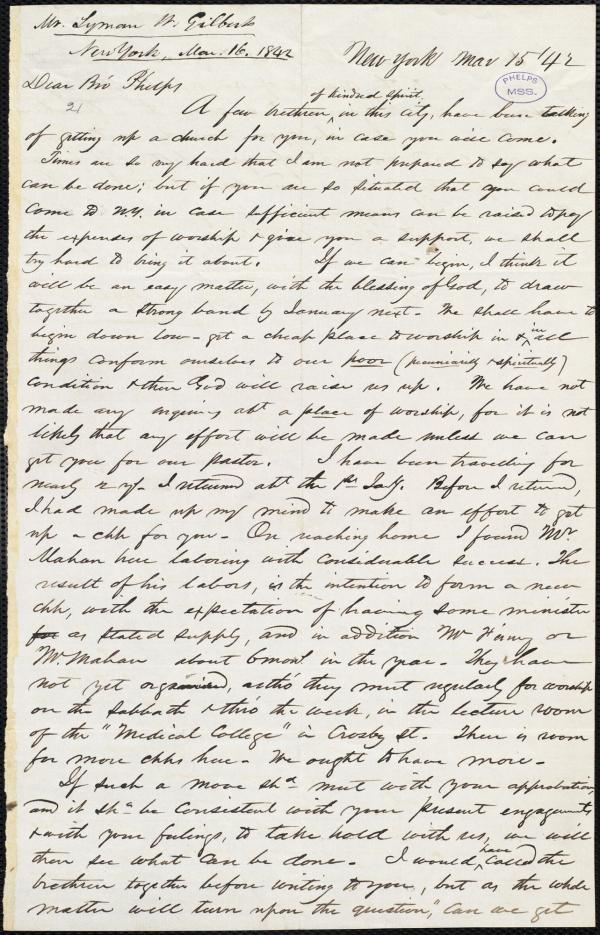 Mr. Lyman W. Gilbert
New York, Mar. 16. 1842
New York Mar 15 / 42
PHELPS
MSS.
Dear Bró Phelps
21
of kindred spirit
A few brethren, in this city, have been talking
of getting up a church for you, in case you will come.
Times are so very hard that I am not prepared to say what
can be done; but if you are so situated that you could
come to N.Y. in case sufficient means can be raised to pay
the expenses of worship & give you a support, we shall
try hard to bring it about. If we can begin, I think it
will be an easy matter, with the blessing of God, to draw
together a strong band by January next. We shall have to
begin down low - get a cheap place to worship in & in all
things conform ourselves to our poor (pecuniarily & spiritually)
condition & then God will raise us up. We have not
made any inquiries abt a place of worship, for it is not
likely that any effort will be made unless we can
get you for our pastor. I have been travelling for
nearly 2 y. I returned abt the 1st Jay. Before I returned,
I had made up my mind to make an effort to get
up a chh for you - On reaching home I found Mr.
Mahan here laboring with considerable success. The
result of his labors, is the intention to form a new
chh, with the expectation of having some minister
for as stated supply, and in addition Mr Finney or
Mr. Mahan about 6 mont. in the year. They have
not yet organized, altho' they meet regularly for worship
on the Sabbath & thro' the week, in the lecture room
of the "Medical College" in Crosby st. There is room
for more chhs here. We ought to have more.
If such a move shd meet with your approbation,
and it shd be consistent with your present engagements
& with your feelings, to take hold with us, we will
then see what can be done. I would have called the
brethren together before writing to you, but as the whole
matter will turn upon the question, "can we get